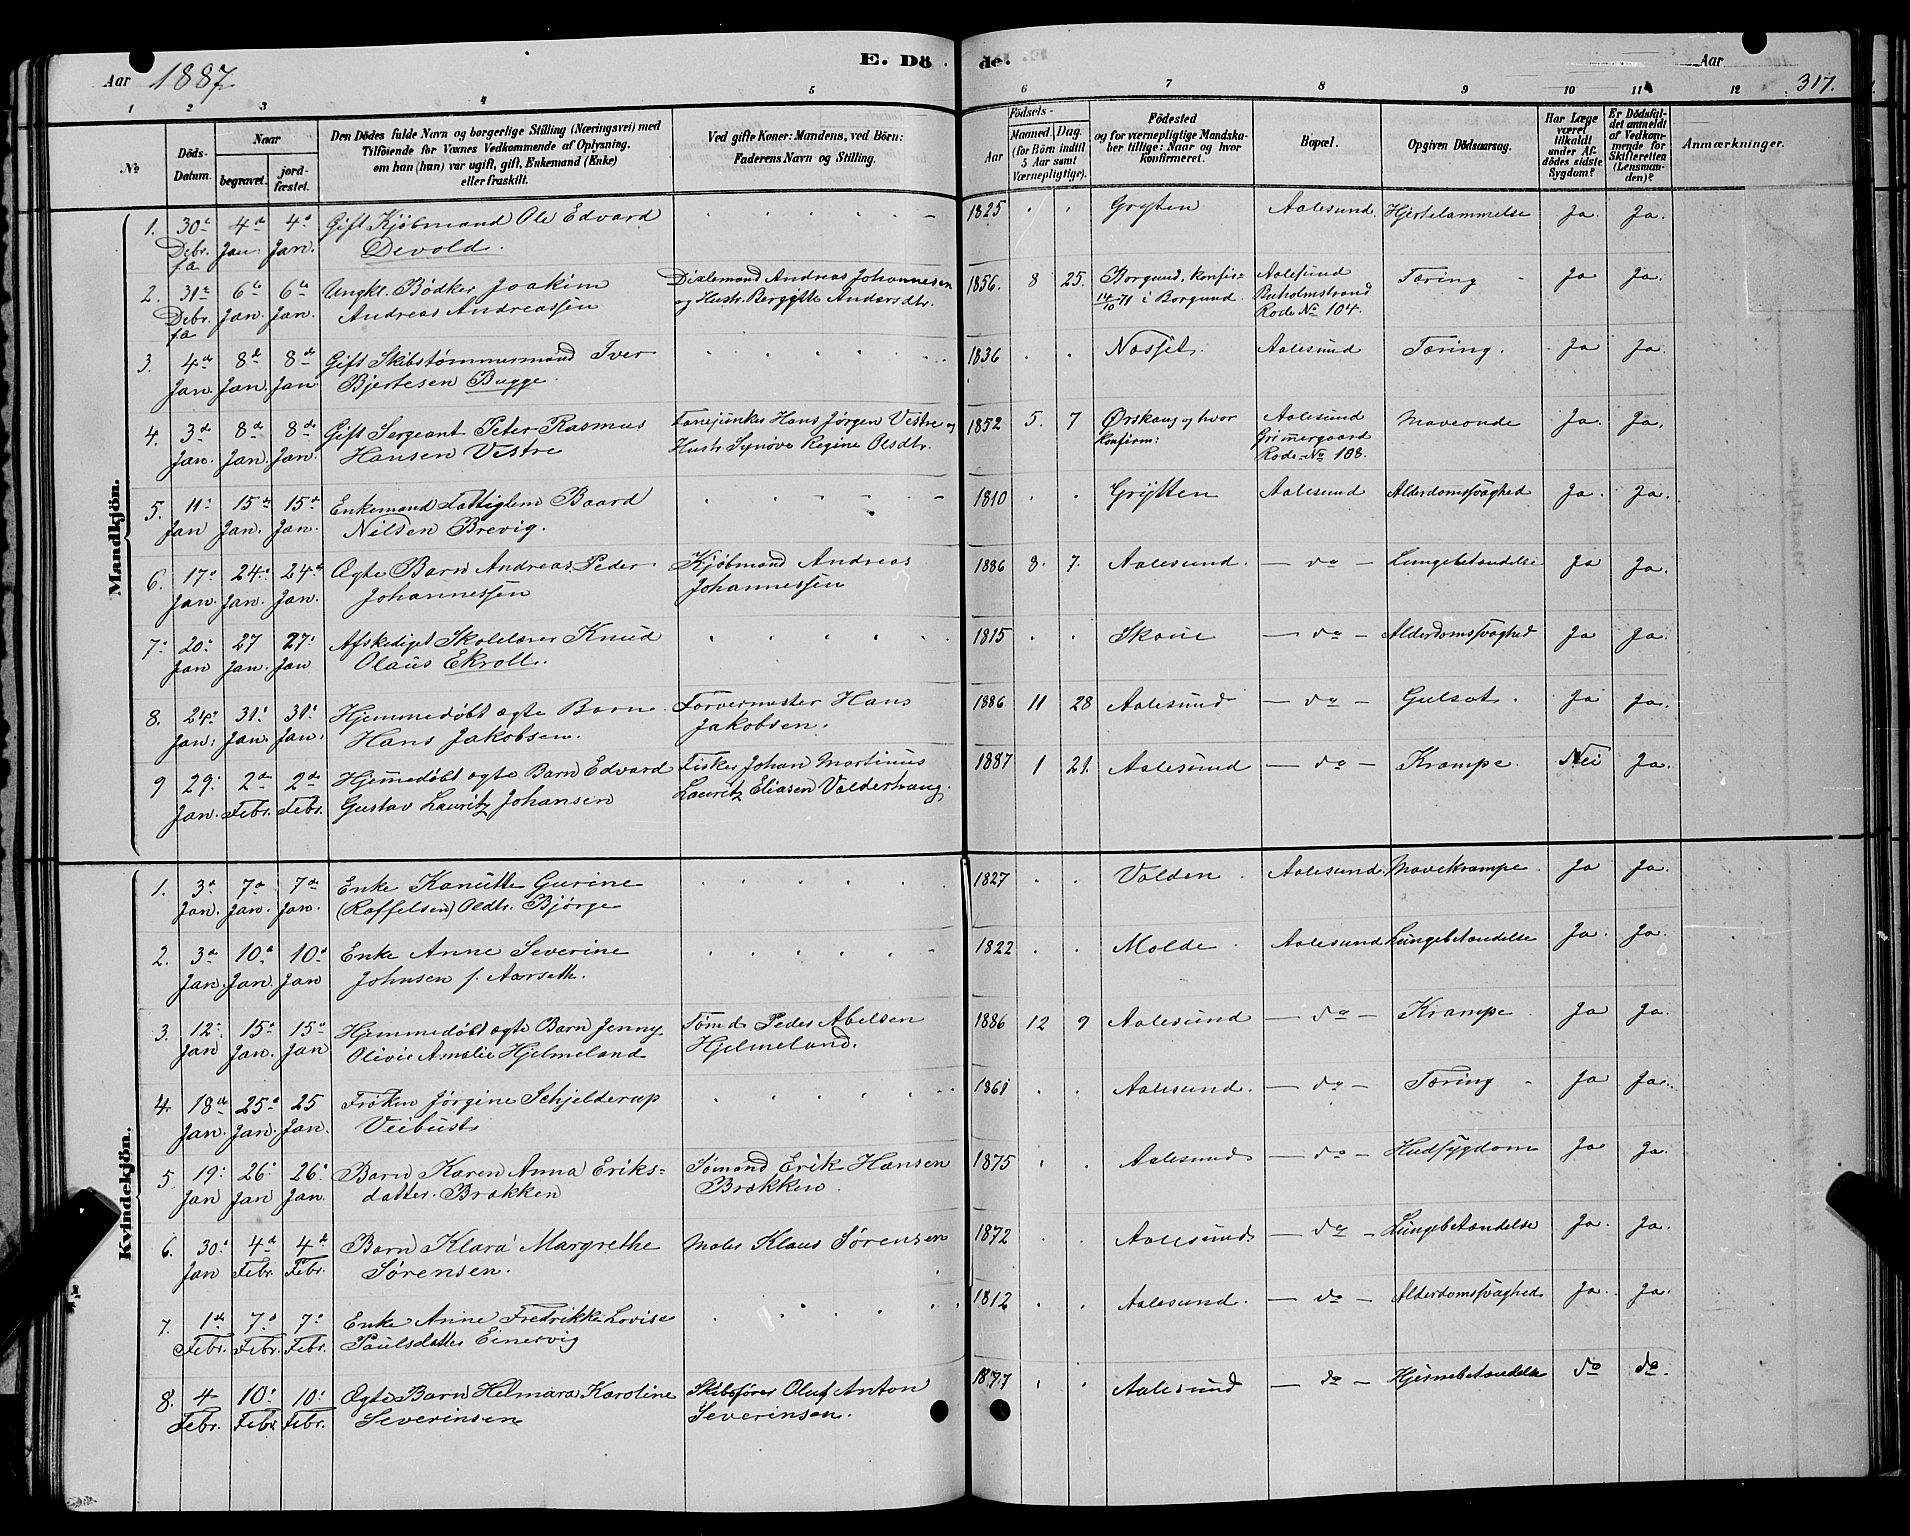 Aar 1887.
E. Dö de.
Aar
317.
1 2 3 4 5 6 7 8 9 10 11 12
No
Döds-Datum.
Naar
begravet. jord-fæstet.
Den Dödes fulde Navn og borgerlige Stilling (Næringsvei) med
Tilföiende for Voxnes Vedkommende af Oplysning.
om han (hun) var ugift, gift, Enkemand (Enke)
eller fraskilt.
Ved gifte Koner: Mandens, ved Börn:
Faderens Navn og Stilling.
Födsels-
Aar
Maaned. Dag.
(for Börn indtil
5 Aar samt
Værnepligtige).
Födested
og for værnepligtige Mandska-
ber tillige: Naar og hvor
konfirmeret.
Bopæl.
Opgiven Dödsaarsag.
Har Læge
været
tilkaldt
under Af-
dödes sidste
Sygdom?
Er Dödsfal-
det anmeldt
af Vedkom-
mende for
Skifteretten
(Lensman-
den)?
Anmærkninger.
Mandkjön.
1. 30te Debr. f.a. 4de Jan. 4de Jan. Gift Kjøbmand Ole Edvard
Devold.
1825 Grytten Aalesund. Hjertelammelse Ja. Ja.
2. 31te Debr. f.a. 6te Jan. 6te Jan. Ungkl. Bødker Joakim
Andreas Andreassen
Dixlemand Andreas Johannesen
og Hustr. Bergitte Andersdtr.
1856. 8 25. Borgund, konfir=
14/10 71 i Borgund.
Aalesund
Buholmstrand
Rode No 104.
Tæring Ja Ja.
3. 4de Jan. 8de Jan. 8de Jan Gift Skibstømmermand Iver
Bjertesen Bugge.
1836 Nosset. Aalesund Tæring. Ja Ja.
4. 3de Jan. 8de Jan. 8de Jan. Gift Sergeant Peter Rasmus
Hansen Vestre
Fanejunker Hans Jørgen Vestre og
Hustr. Synøve Regine Olsdtr.
1852 5. 7 Ørskaug og hvor
konfirm:
Aalesund
Grimergaard
Rode No 108.
Maveonde Ja. Ja.
5. 11: Jan 15de Jan. 15de Jan. Enkemand Fattiglem Baard
Nilsen Brevig.
1810 Grytten Aalesund Alderdomssvaghed Ja. Ja.
6. 17: Jan. 24: Jan. 24de Jan. Ægte Barn Andreas Peder
Johannessen
Kjøbmand Andreas
Johannessen
1886 8. 7. Aalesund. — do — Lungebetændelse Ja Ja.
7. 20: Jan 27 Jan. 27: Jan Afskediget Skolelærer Knud
Olaus Ekroll.
1815 Skoue — do — Alderdomssvaghed Ja Ja.
8. 24: Jan: 31: Jan. 31: Jan. Hjemmedøbt ægte Barn
Hans Jakobsen.
Farvermester Hans
Jakobsen.
1886 11 28 Aalesund — do — Gulsot. Ja Ja.
9 29: Jan. 2de Febr. 2de Febr. Hjemmedøbt ægte Barn Edvard
Gustav Lauritz Johansen
Fisker Johan Martinus
Lauritz Eliasen Valderhaug.
1887 1 21. Aalesund — do — Krampe. Nei Ja.
Kvindekjön.
1. 3de Jan. 7de Jan. 7de Jan. Enke Kanutte Gurine
(Roffelsen) Oldtr. Bjørge
1827 Volden. Aalesund. Mavekrampe. Ja Ja.
2. 3de Jan. 10de Jan. 10de Jan Enke Anne Severine
Johnsen f. Aarseth.
1822 Molde. Aalesund Lungebetændelse Ja. Ja.
3. 12: Jan 15de Jan. 15de Jan Hjemmedøbt ægte Barn Jenny
Olivie Amalie Hjelmeland
Sømd Peder Abelsen
Hjelmeland.
1886 12 9 Aalesund — do — Krampe. Ja Ja.
4. 18de Jan. 25de Jan. 25 Jan. Frøken Jørgine Schjelderup
Veibust
1861 Aalesund. — do — Tæring Ja Ja.
5 19: Jan 26: Jan 26: Jan. Barn Karen Anna Eriks=
datter Brækken
Sømand Erik Hansen
Brækken.
1875 Aalesund — do — Hudsygdom Ja Ja.
6. 30: Jan 4de Febr. 4de Febr. Barn Klara Margrethe
Sørensen.
Maler Klaus Sørensen
1872 Aalesund. — do — Lungebetændelse Ja. Ja.
7. 1ste Febr. 7de Febr. 7: Febr. Enke Anne Fredrikke Lovise
Paulsdatter Einervig
1812 Aalesund. — do — Alderdomssvaghed Ja. Ja.
8. 4 Febr. 10: Febr. 10: Febr. Ægte Barn Helmara Karoline
Severinsen
Skibsfører Oluf Anton
Severinsen.
1877 Aalesund — do — Hjernebetændelse do do.